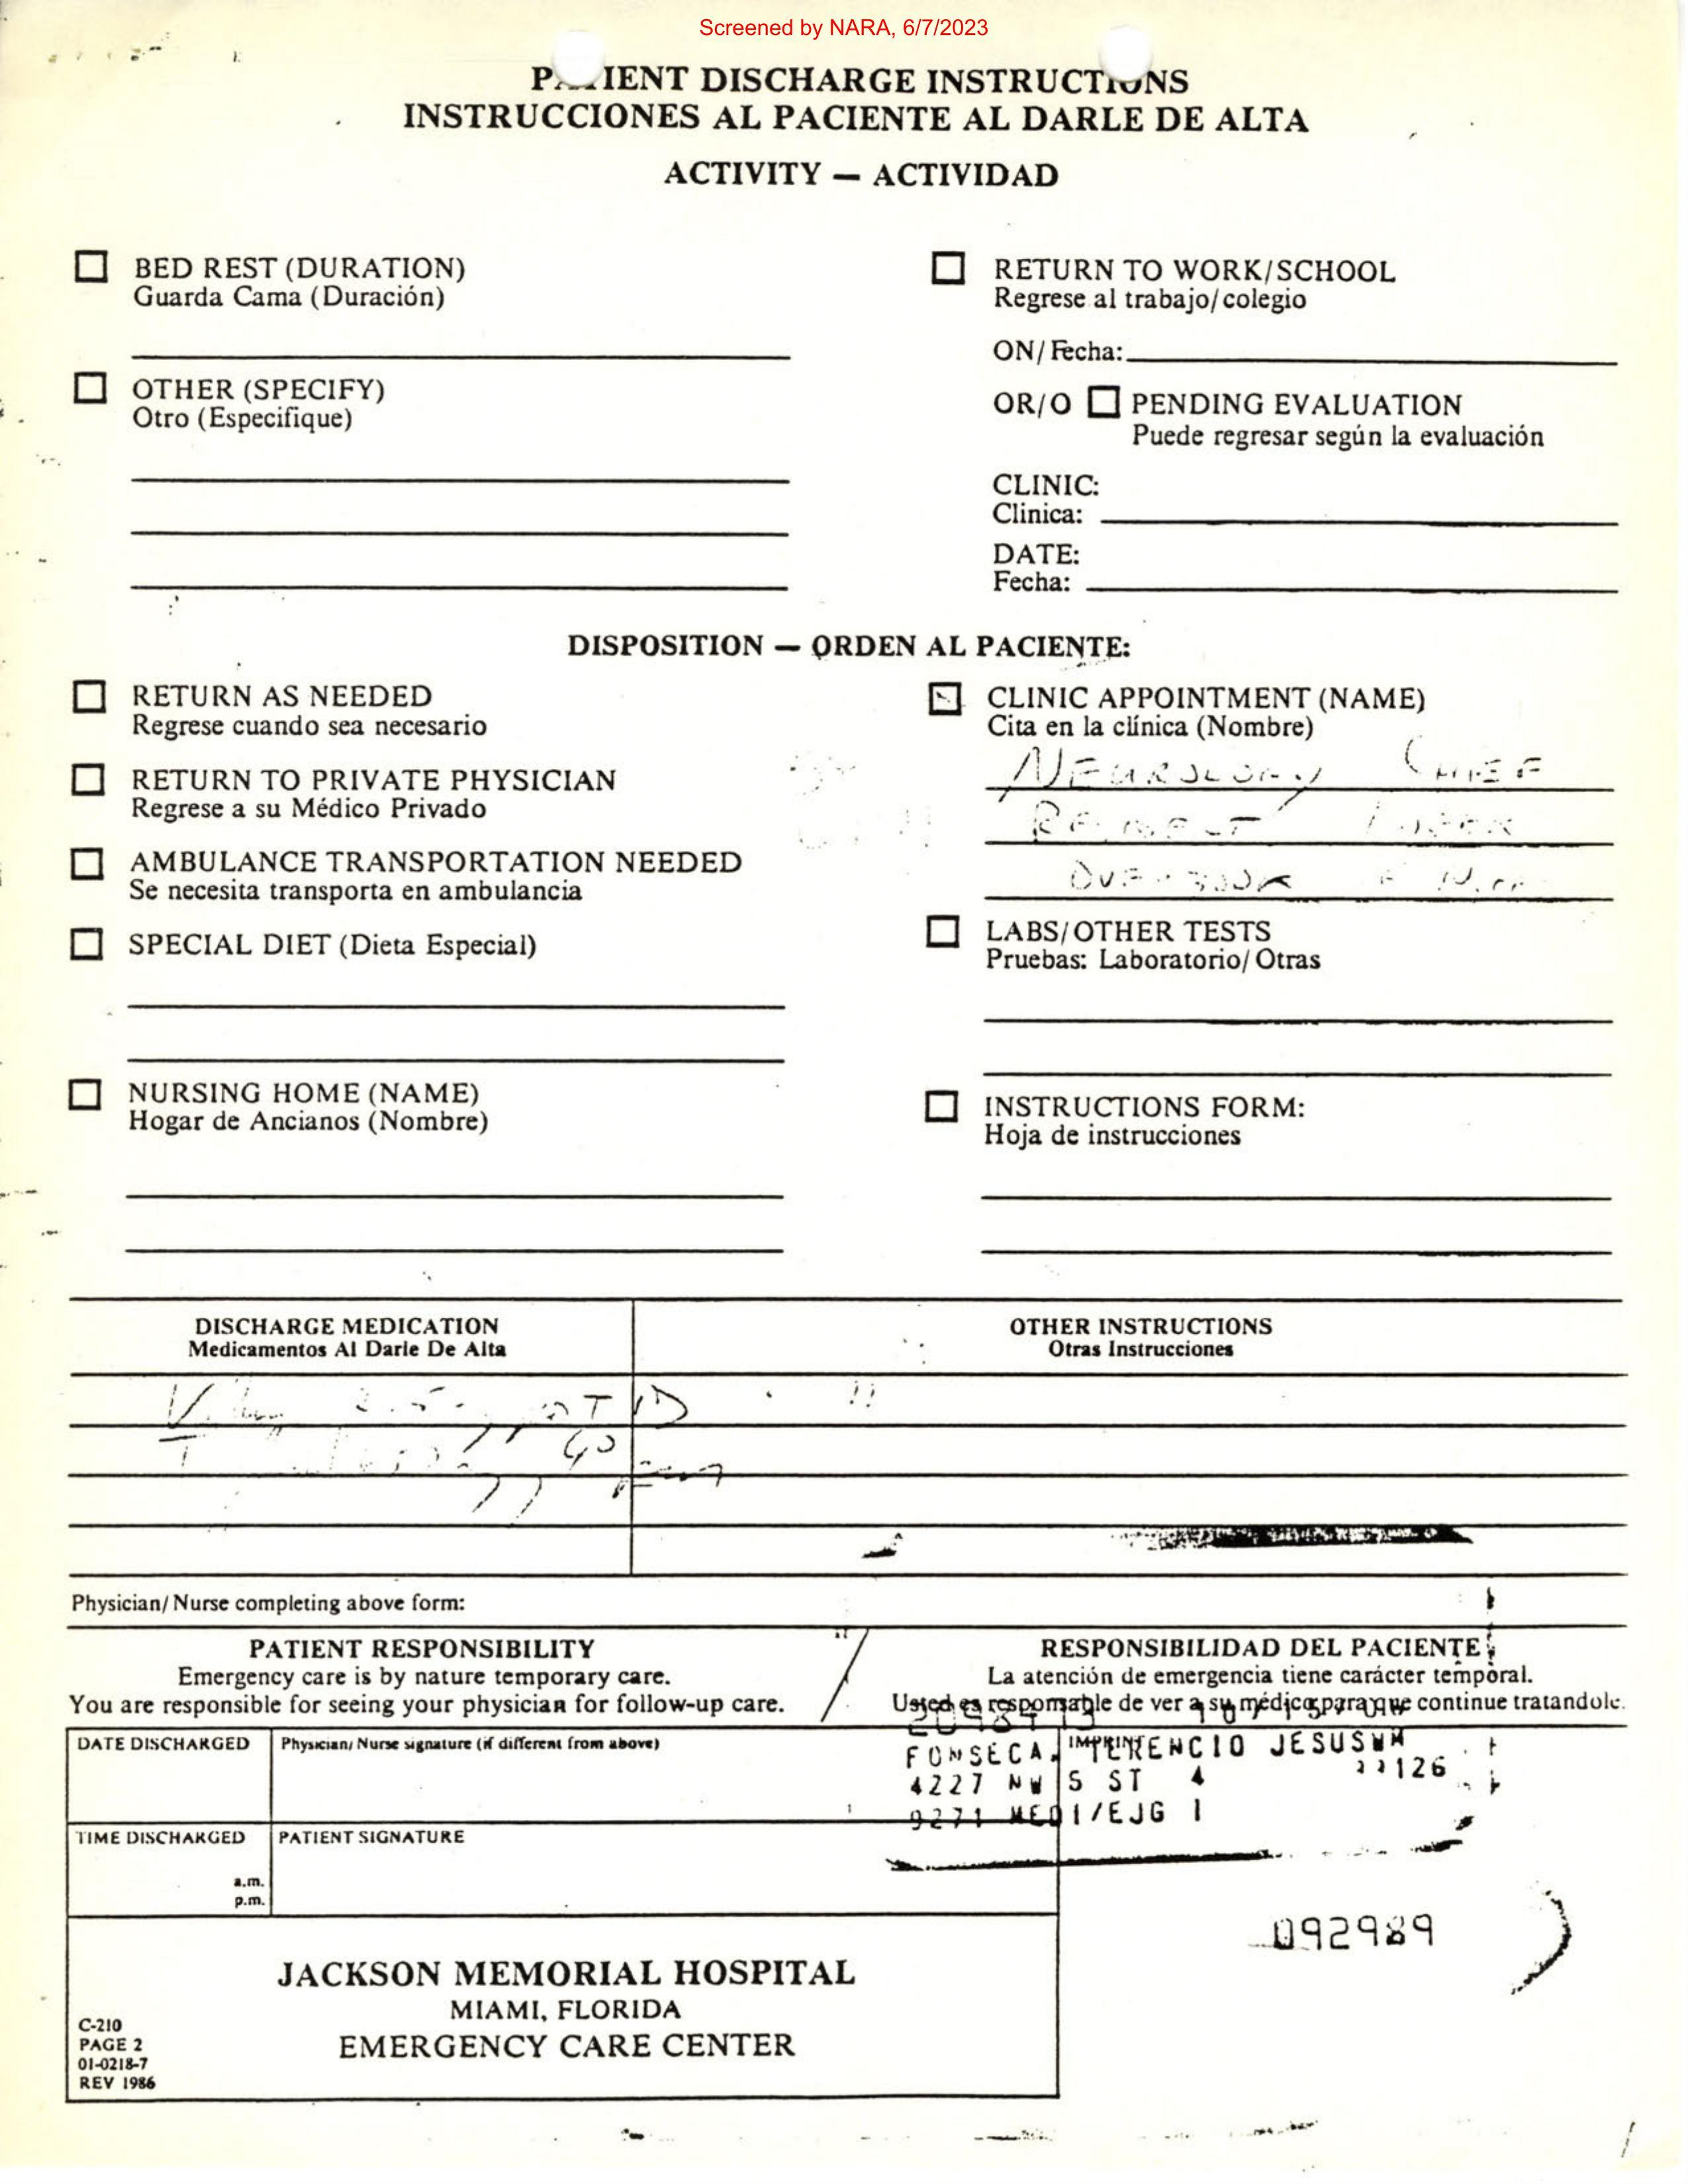 Screened by NARA, 6/7/2023
PATIENT DISCHARGE INSTRUCTIONS
INSTRUCCIONES AL PACIENTE AL DARLE DE ALTA
ACTIVITY — ACTIVIDAD
BED REST (DURATION)
Guarda Cama (Duración)
OTHER (SPECIFY)
Otro (Especifique)
RETURN TO WORK/SCHOOL
Regrese al trabajo/colegio
ON/Fecha:
OR/O PENDING EVALUATION
Puede regresar según la evaluación
CLINIC:
Clinica:
DATE:
Fecha:
DISPOSITION — ORDEN AL PACIENTE:
RETURN AS NEEDED
Regrese cuando sea necesario
RETURN TO PRIVATE PHYSICIAN
Regrese a su Médico Privado
AMBULANCE TRANSPORTATION NEEDED
Se necesita transporta en ambulancia
SPECIAL DIET (Dieta Especial)
NURSING HOME (NAME)
Hogar de Ancianos (Nombre)
CLINIC APPOINTMENT (NAME)
Cita en la clínica (Nombre)
NEUROLOGY CHIEF
OVERBOOK
LABS/OTHER TESTS
Pruebas: Laboratorio/Otras
INSTRUCTIONS FORM:
Hoja de instrucciones
DISCHARGE MEDICATION
Medicamentos Al Darle De Alta
OTHER INSTRUCTIONS
Otras Instrucciones
TID
Physician/Nurse completing above form:
PATIENT RESPONSIBILITY
Emergency care is by nature temporary care.
You are responsible for seeing your physician for follow-up care.
RESPONSIBILIDAD DEL PACIENTE
La atención de emergencia tiene carácter temporal.
Usted es responsable de ver a su médico para que continue tratandole.
DATE DISCHARGED
Physician/Nurse signature (if different from above)
TIME DISCHARGED
a.m.
p.m.
PATIENT SIGNATURE
FONSECA, TERENCIO JESUS WM
4227 NW 5 ST 4 33126
9271 MEDI/EJG 1
092989
JACKSON MEMORIAL HOSPITAL
MIAMI, FLORIDA
EMERGENCY CARE CENTER
C-210
PAGE 2
01-0218-7
REV 1986